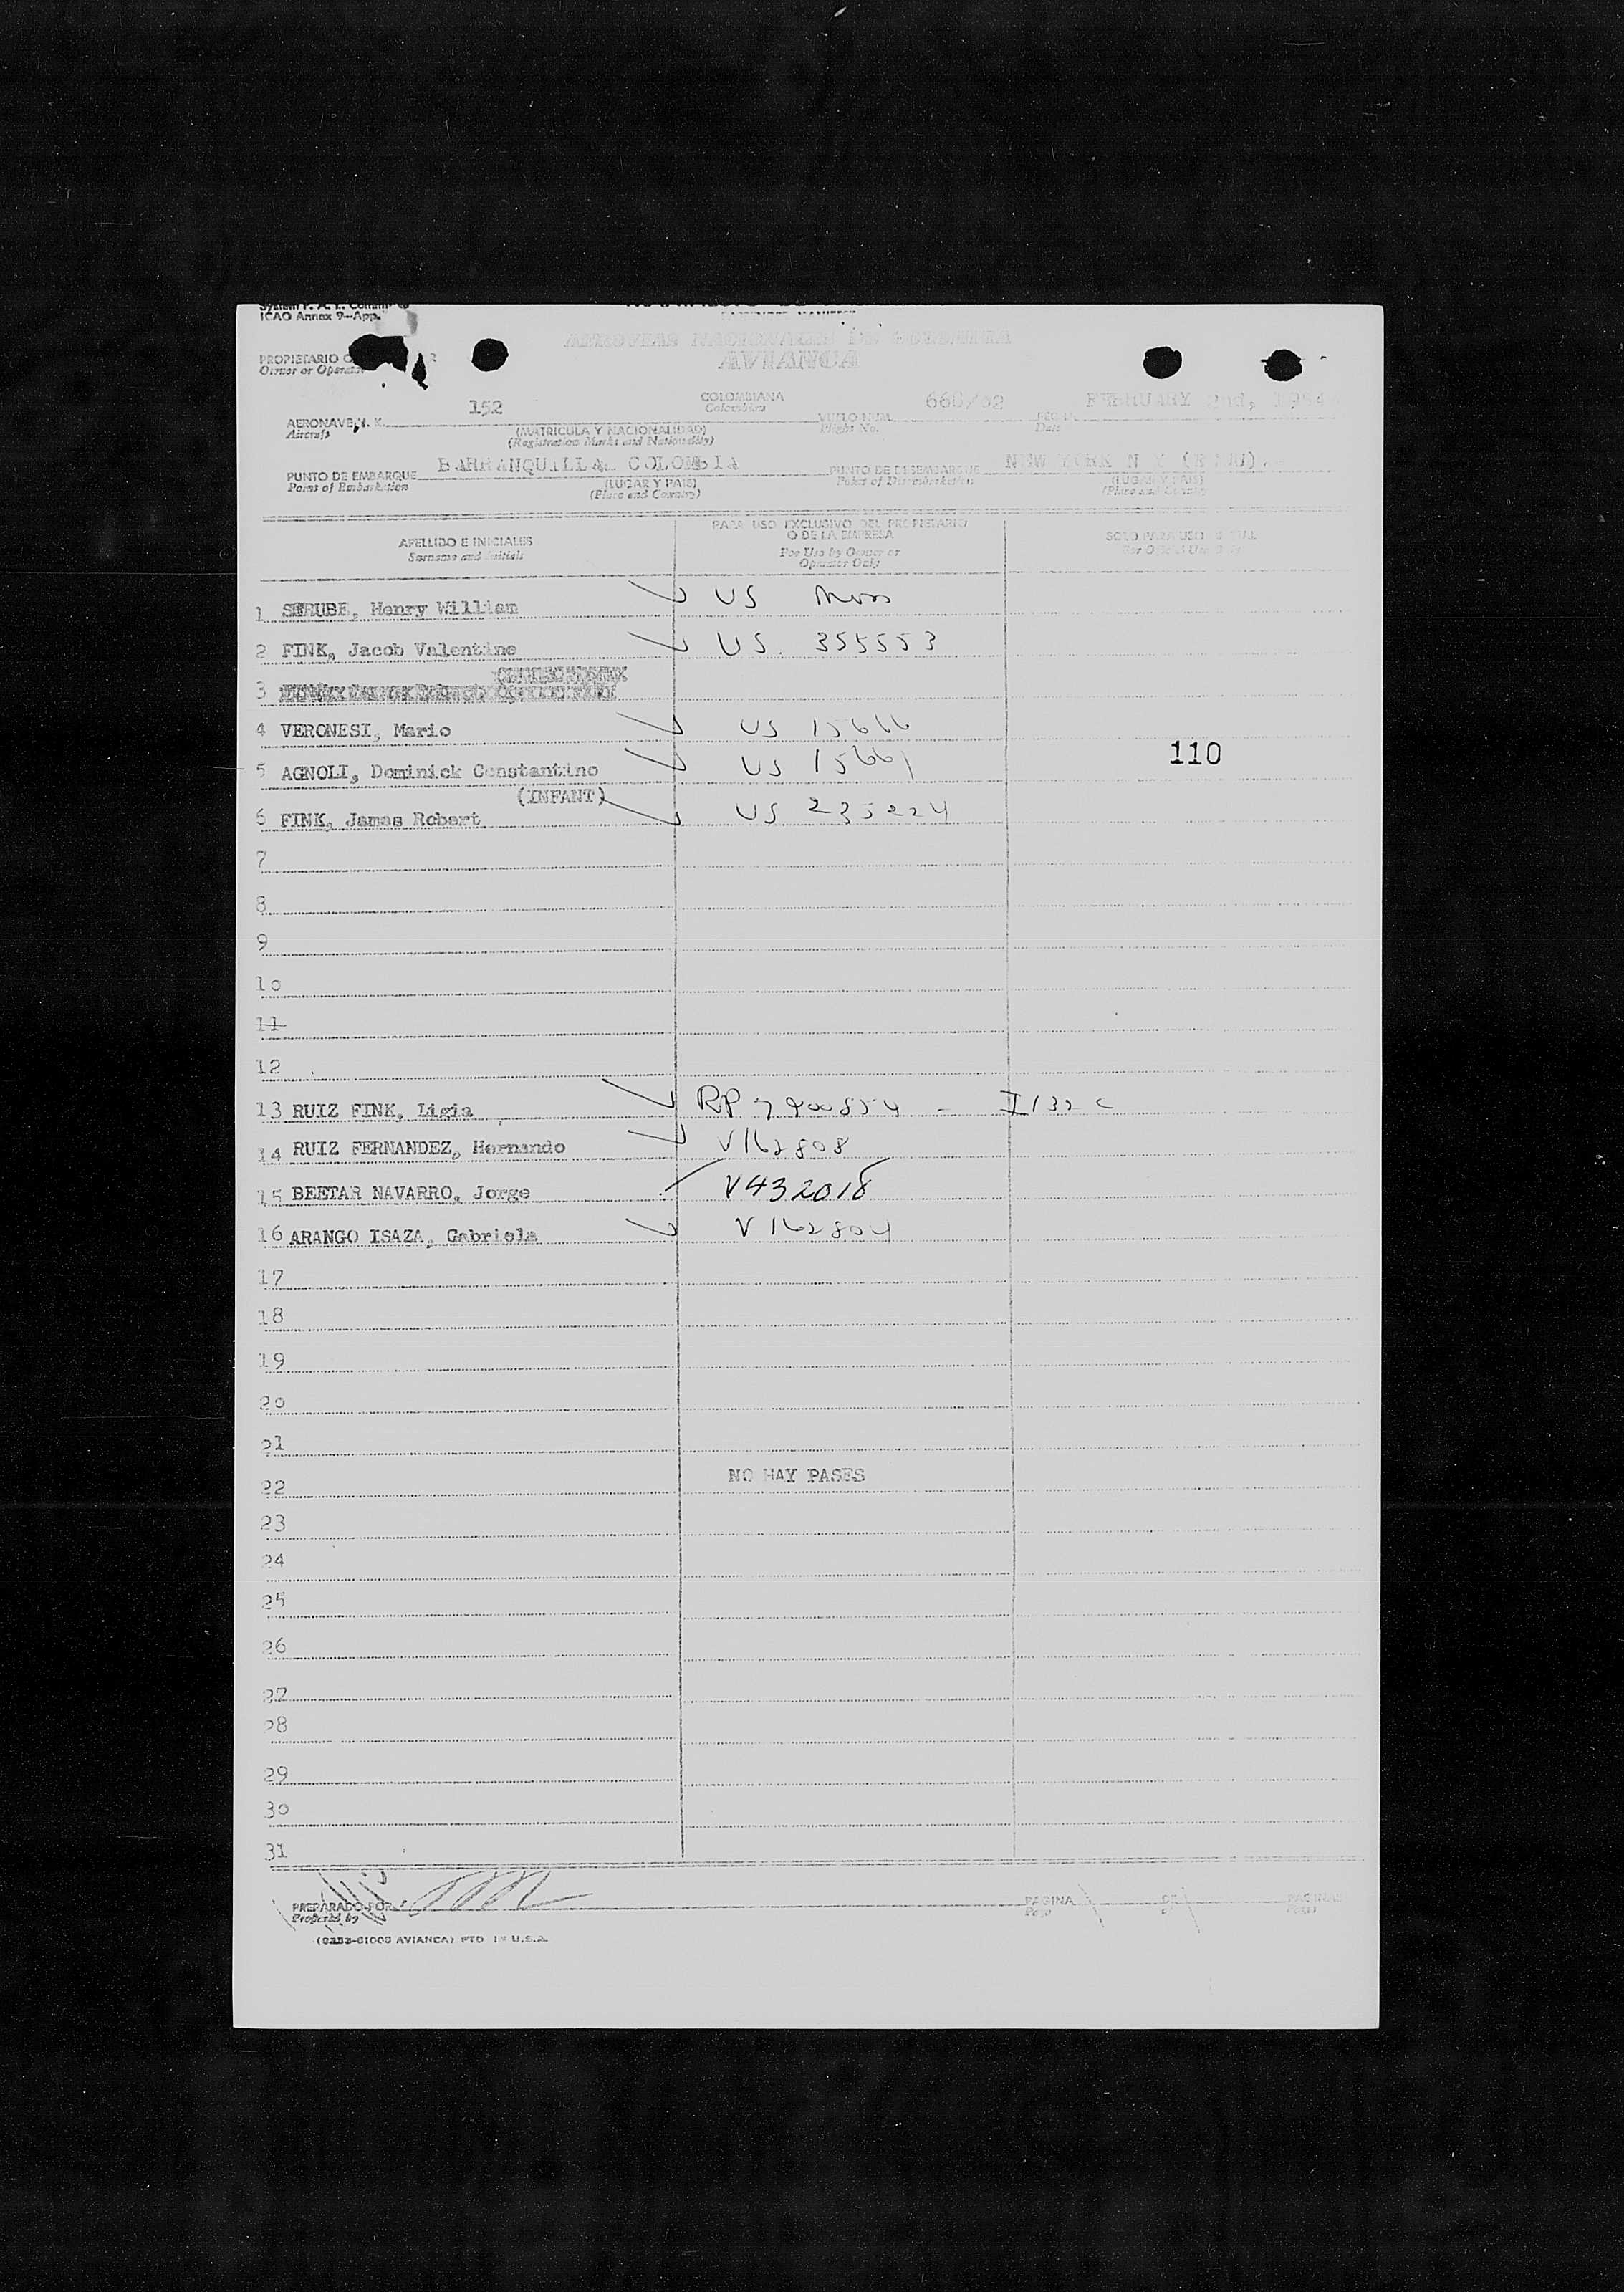 ICAO Annex 9—App.
AEROVIAS NACIONALES DE COLOMBIA
AVIANCA
PROPIETARIO O
Owner or Operator
152 COLOMBIANA 660/02 FEBRUARY 2nd, 1954
Colombian
AERONAVE, N. K. VUELO NUM. FECHA
Aircraft (MATRICULA Y NACIONALIDAD) Flight No. Date
(Registration Marks and Nationality)
BARRANQUILLA. COLOMBIA NEW YORK N Y
PUNTO DE EMBARQUE (LUGAR Y PAIS) PUNTO DE DESEMBARQUE (LUGAR Y PAIS)
Point of Embarkation (Place and Country) Point of Disembarkation (Place and Country)
APELLIDO E INICIALES PARA USO EXCLUSIVO DEL PROPIETARIO SOLO PARA USO OFICIAL
Surname and Initials O DE LA EMPRESA For Official Use Only
For Use by Owner or
Operator Only
1 STRUBE, Henry William US
2 FINK, Jacob Valentine US. 355553
3
4 VERONESI, Mario US 15666
110
5 AGNOLI, Dominick Constantino US 15661
(INFANT)
6 FINK, James Robert US 235224
7
8
9
10
11
12
13 RUIZ FINK, Ligia RP 7900854 - I 132 c
14 RUIZ FERNANDEZ, Hernando V162808
15 BEETAR NAVARRO, Jorge V432018
16 ARANGO ISAZA, Gabriela V 162804
17
18
19
20
21
NO HAY PASES
22
23
24
25
26
27
28
29
30
31
PREPARADO POR PAGINA 1 DE 1 PAGINAS
Prepared by Page of Pages
AVIANCA) PTD IN U.S.A.